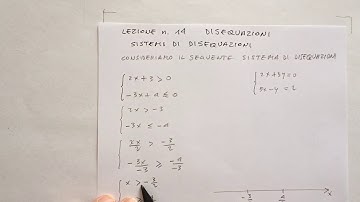 LEZIONE n. 19 DISEQUAZIONI
SISTEMI DI DISEQUAZIONI
CONSIDERIAMO IL SEGUENTE SISTEMA DI DISEQUAZIONI
2x+3>0
-3x+4≤0
2x>-3
-3x≤-4
2x/2 > -3/2
-3x/-3 ≥ -4/-3
x>-3/2
2x+3y=0
5x-y=2
x